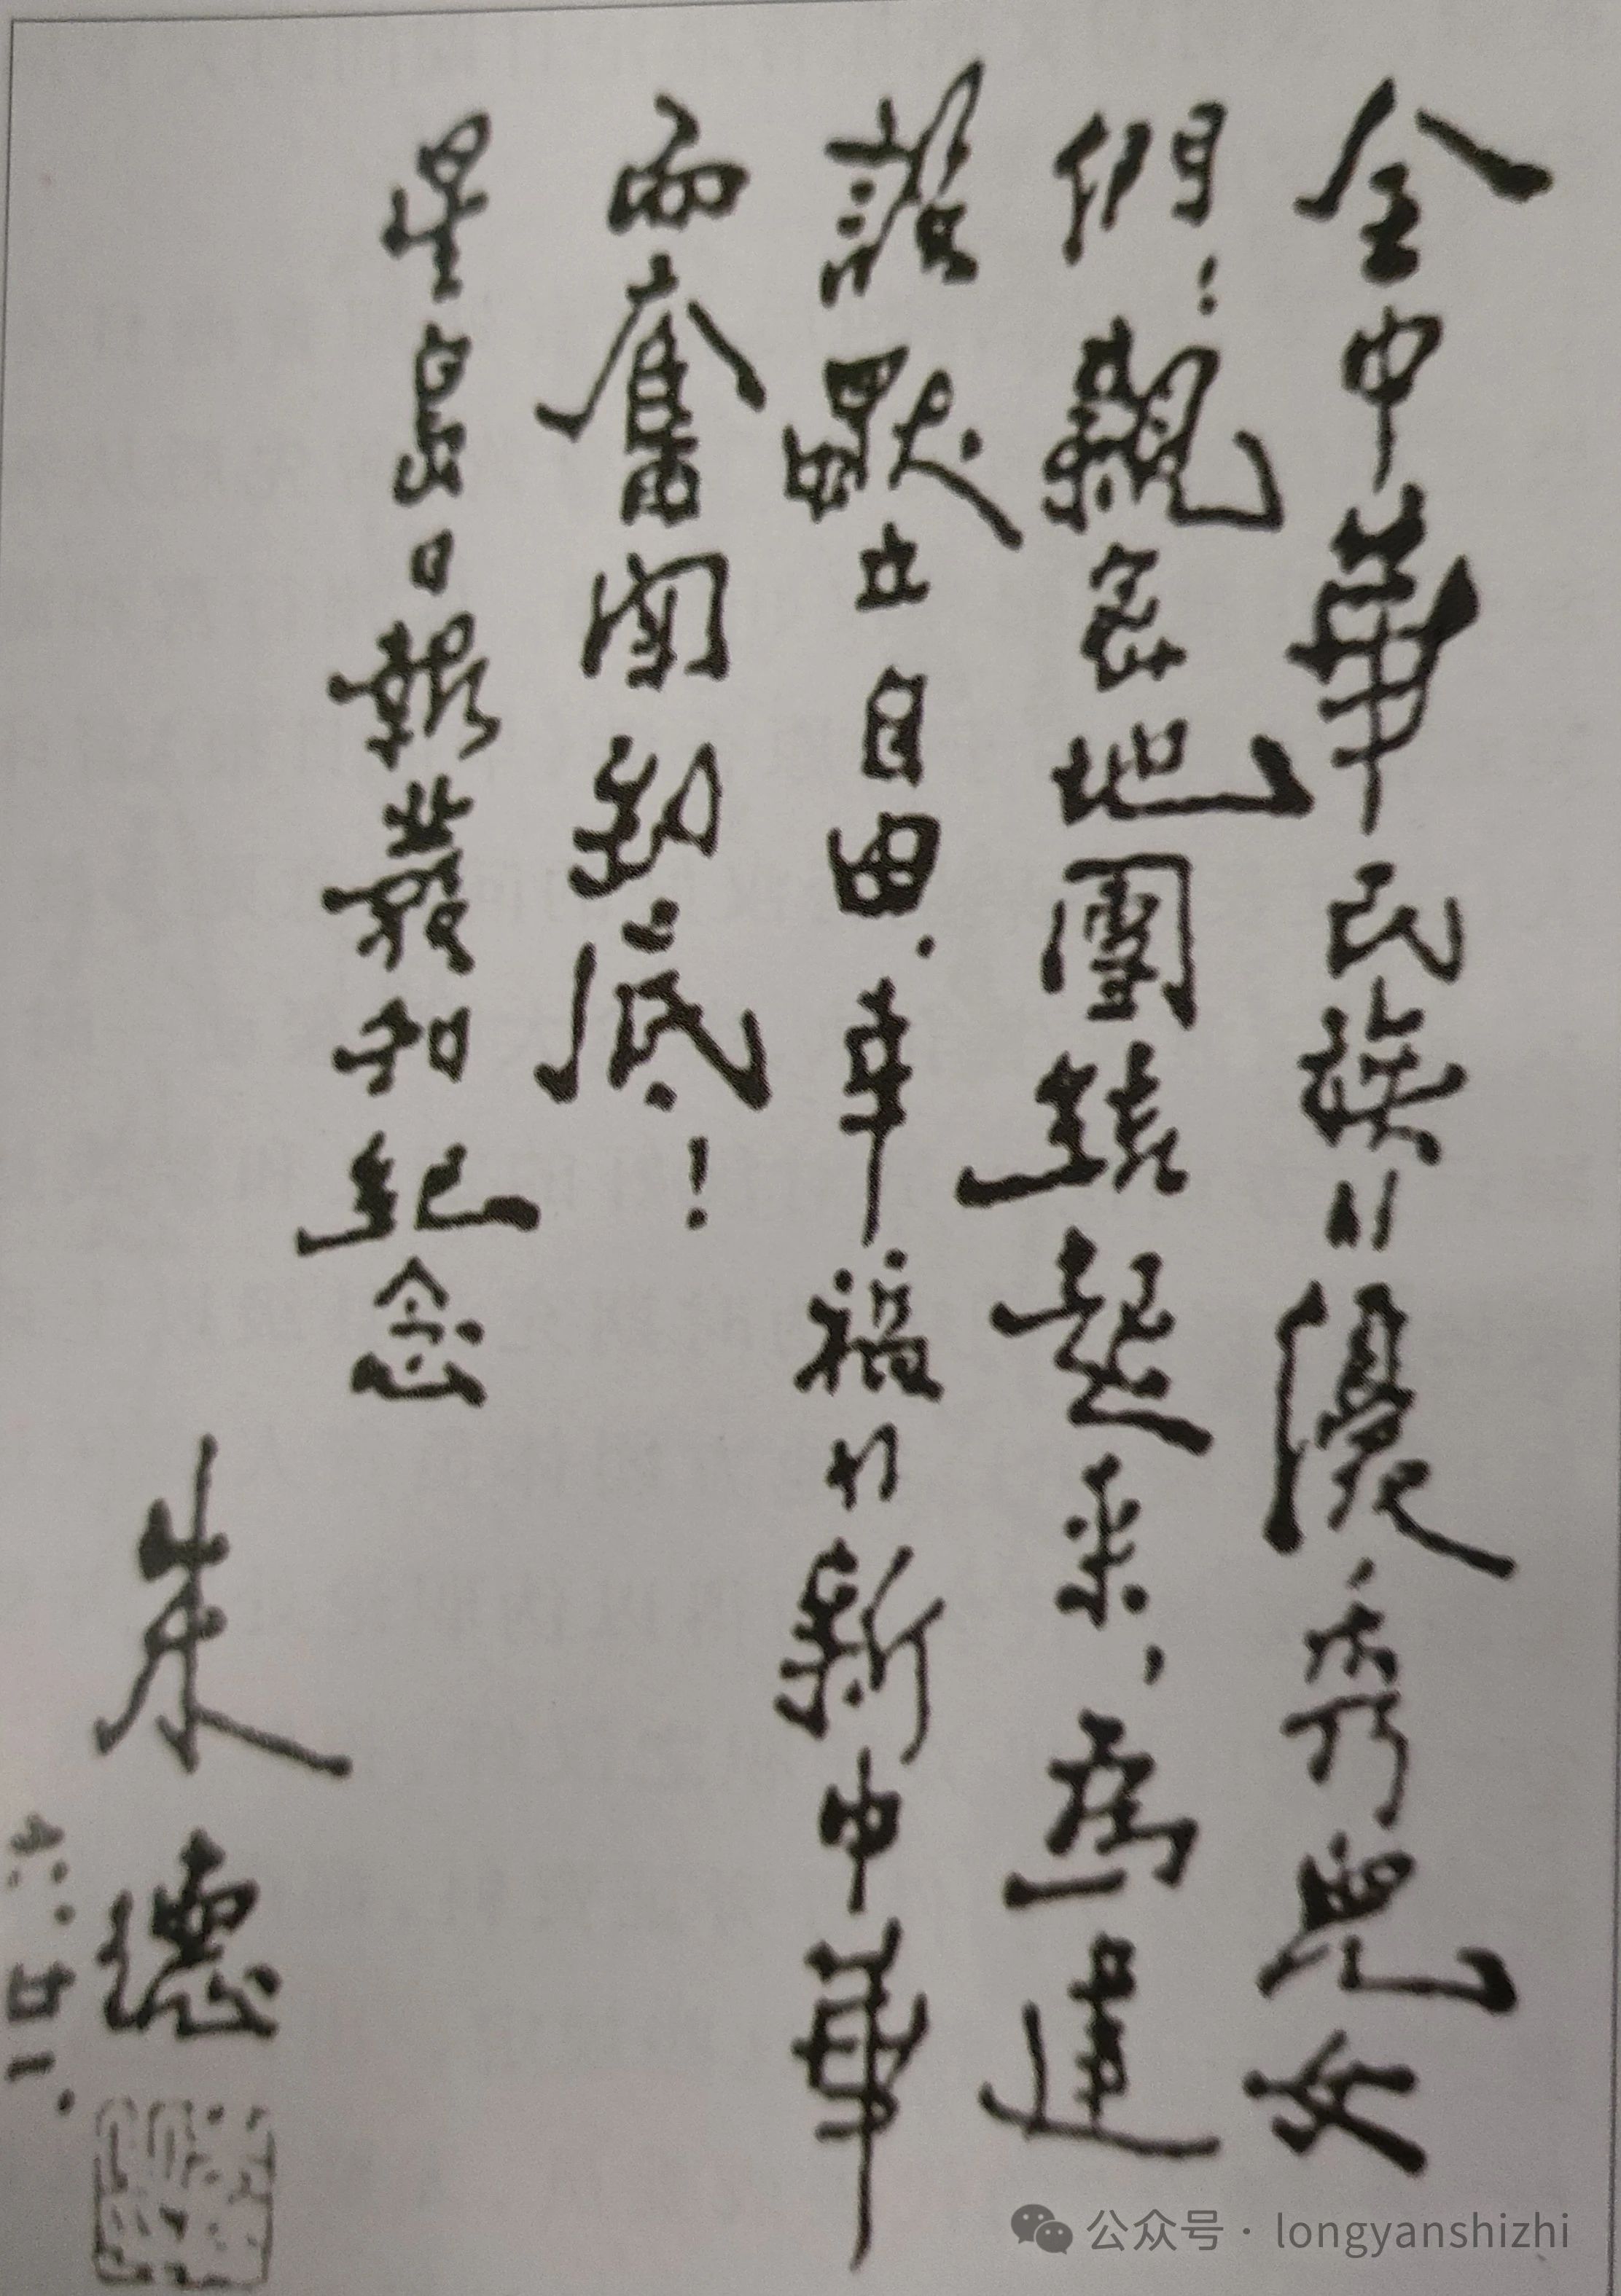 全中華民族的優秀兒女
們！親密地團結起來，為建
設獨立自由.幸福的新中華
而奮鬥到底！
星島日報叢和紀念
朱德
六.廿一.
公众号 · longyanshizhi